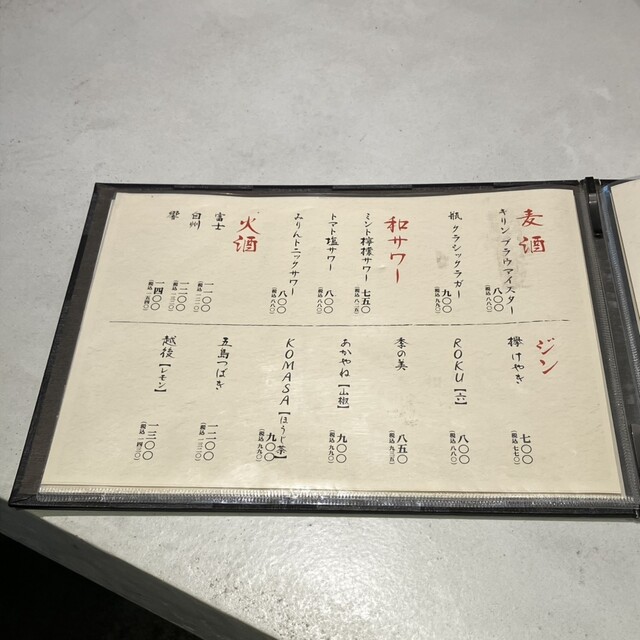 麦酒
キリン ブラウマイスター 八〇〇
(税込 八八〇)
瓶 クラシックラガー 九〇〇
(税込 九九〇)
和サワー
ミント檸檬サワー 七五〇
(税込 八二五)
トマト塩サワー 八〇〇
(税込 八八〇)
みりんトニックサワー 八〇〇
(税込 八八〇)
火酒
富士 一一〇〇
白州 一二〇〇
(税込 一三二〇)
響 一四〇〇
(税込 一五四〇)
ジン
欅 けやき 七〇〇
(税込 七七〇)
ROKU【六】 八〇〇
(税込 八八〇)
季の美 八五〇
あかやね【山椒】 九〇〇
(税込 九九〇)
KOMASA【ほうじ茶】 九〇〇
(税込 九九〇)
五島つばき 一二〇〇
(税込 一三二〇)
越後【レモン】 一三〇〇
(税込 一四三〇)